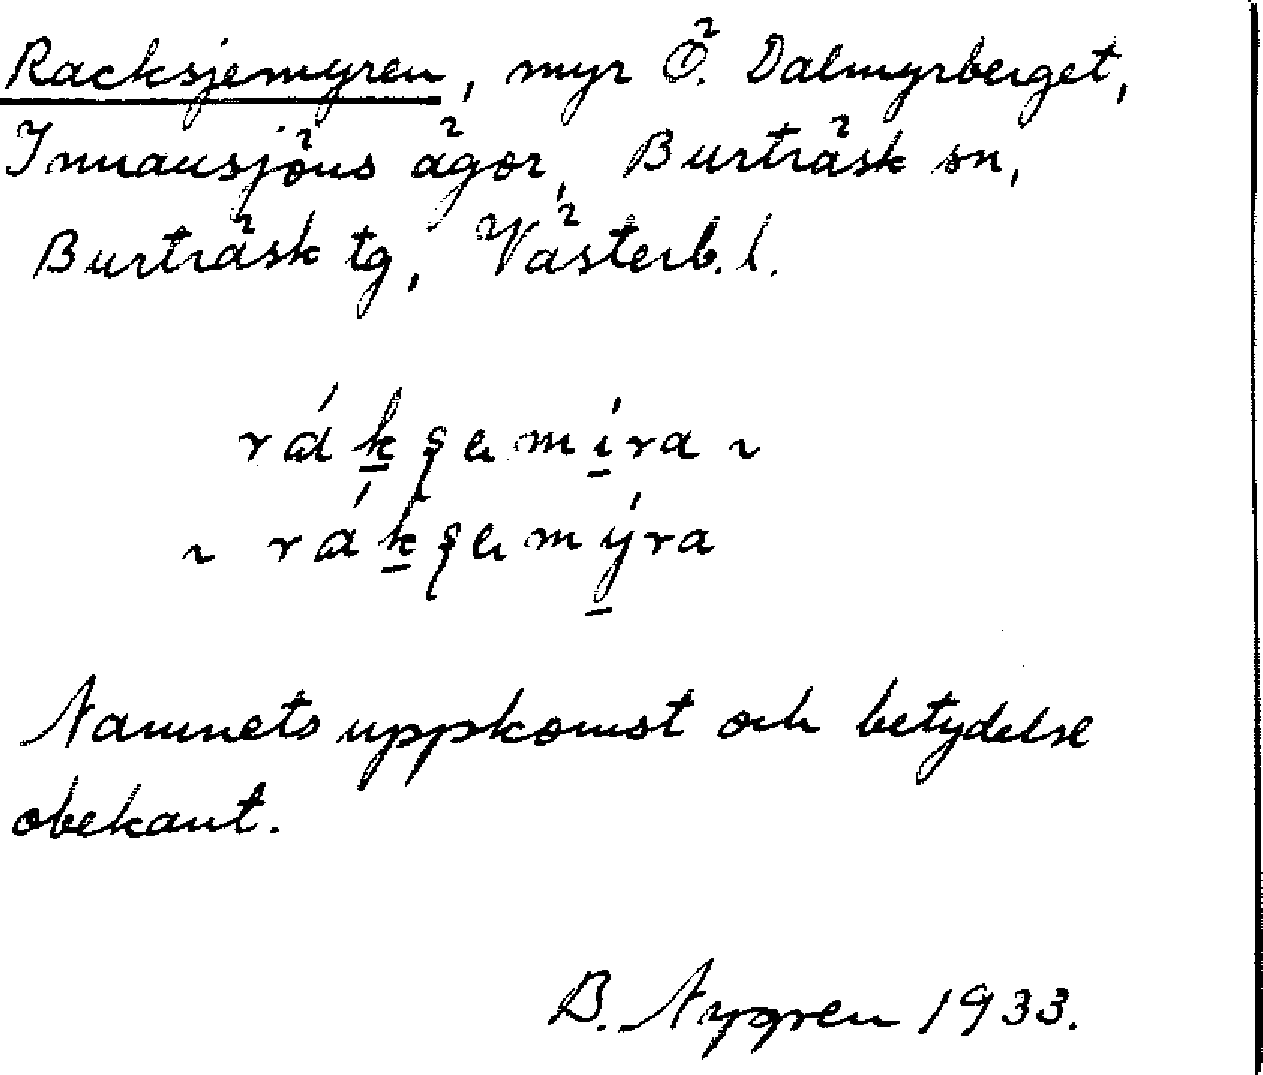 Racksjemyren, myr Ö. Dalmyrberget,
Innansjöns ägor, Burträsk sn,
Burträsk tg, Västerb. l.
rák̲ʂemí̲ra ~
~ rák̲ʂemý̲ra
Namnets uppkomst och betydelse
obekant.
B. Nygren 1933.